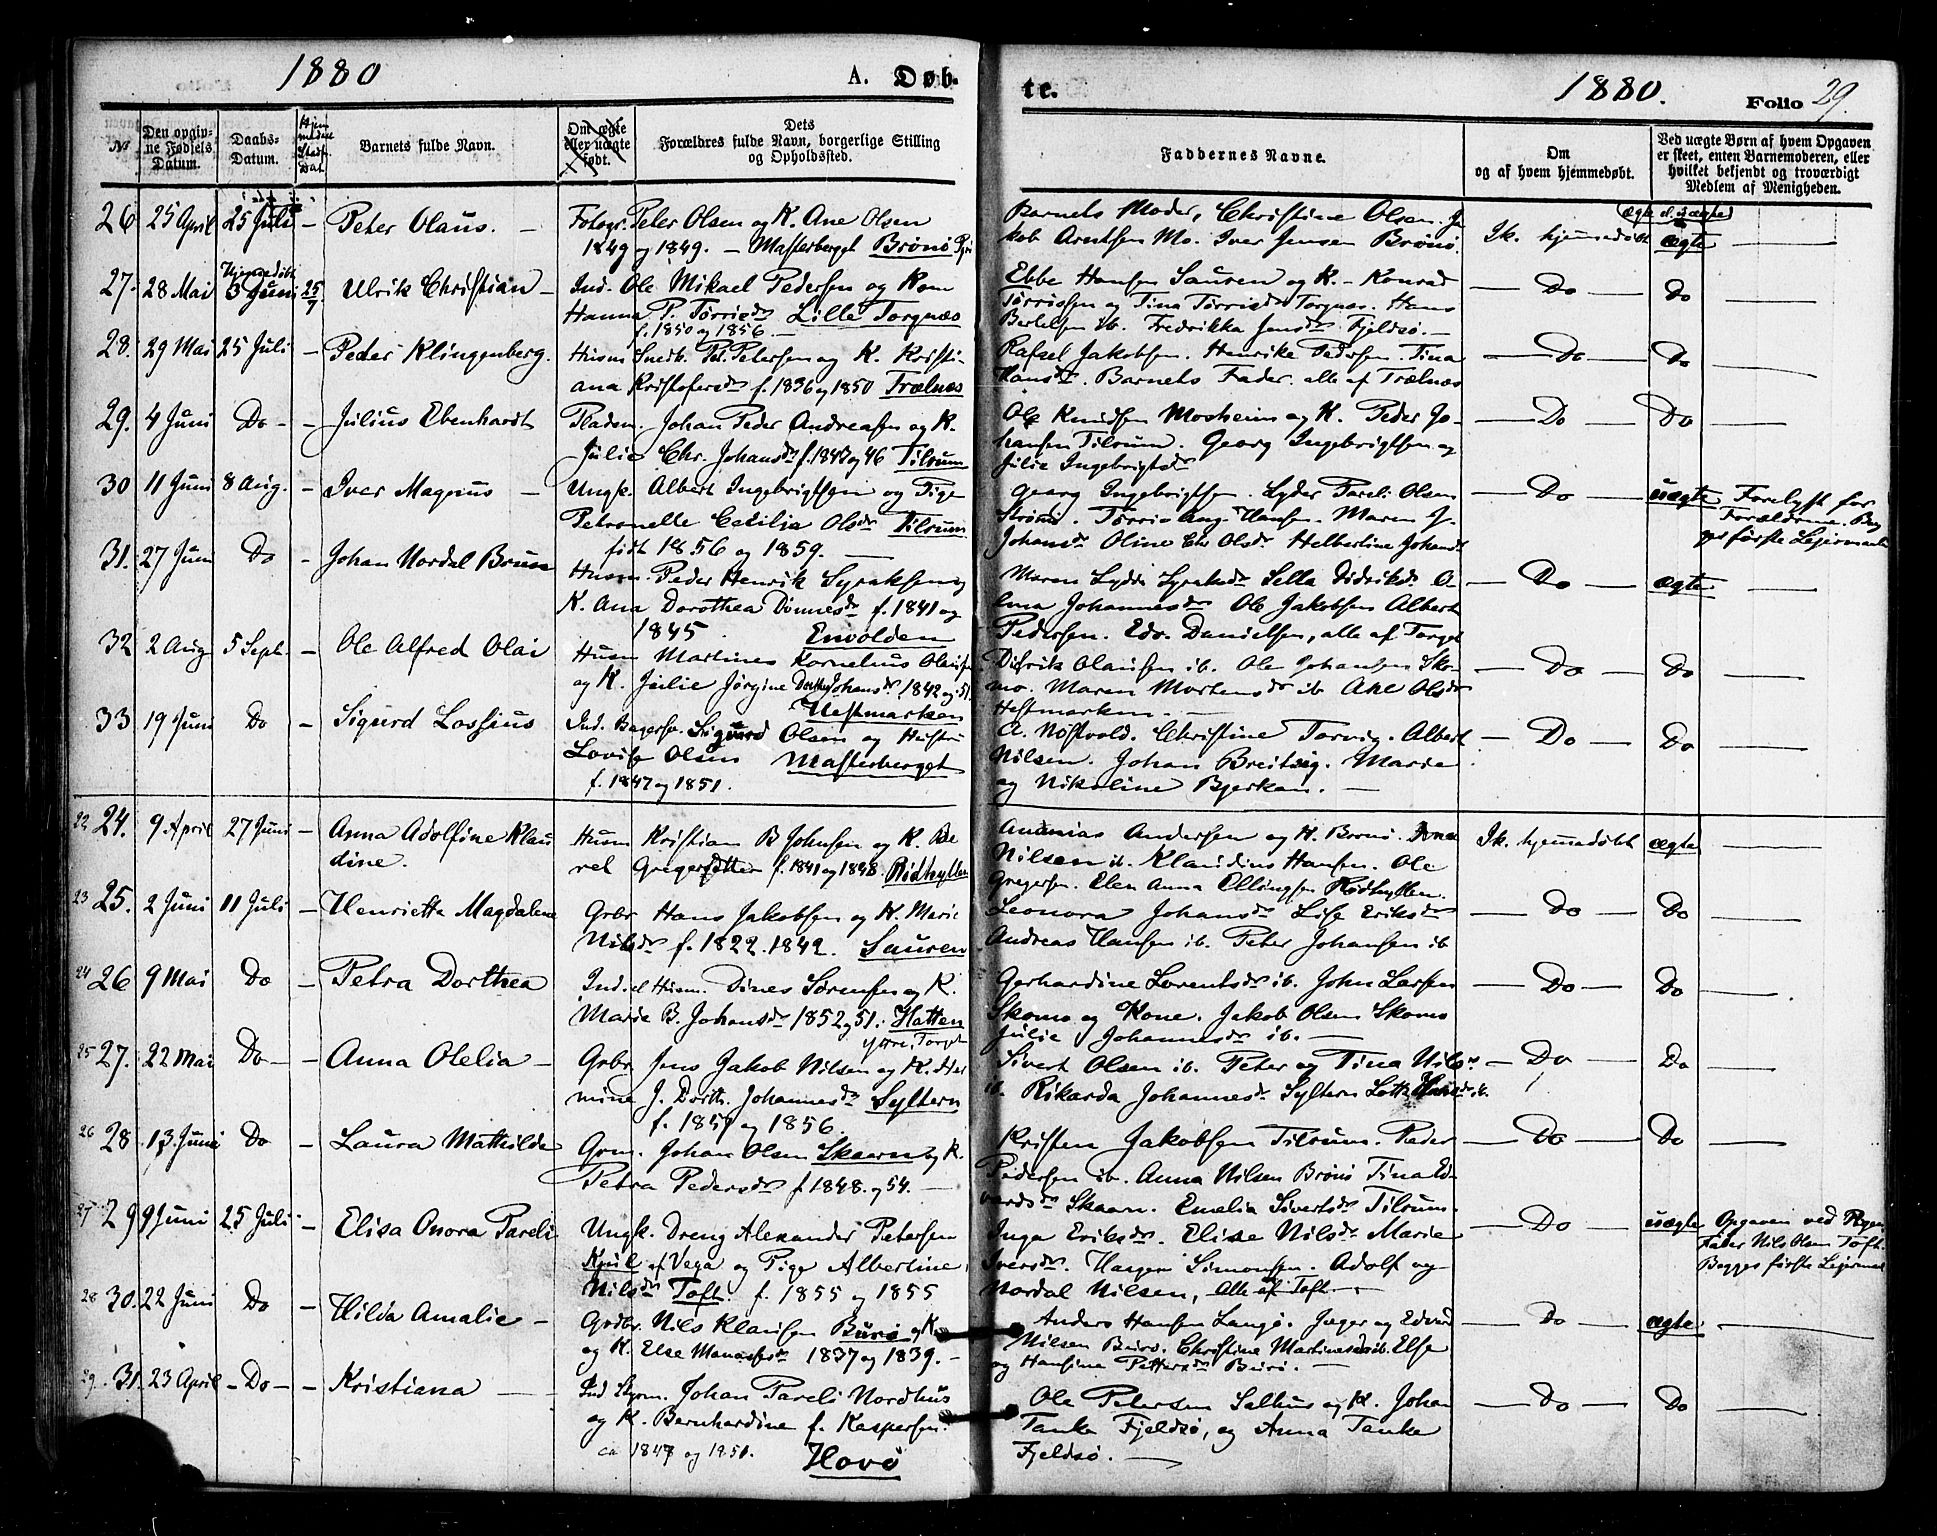 1880
A. Døb-
te.
1880.
Folio 29.
№
Den opgiv-
ne Fødsels
Datum.
Daabs-
Datum.
Hjem
medøbt
Stadf.
Dat
Barnets fulde Navn.
Om ægte
eller uægte
født.
Dets
Forældres fulde Navn, borgerlige Stilling
og Opholdssted.
Faddernes Navne.
Om
og af hvem hjemmedøbt.
Ved uægte Børn af hvem Opgaven
er skeet, enten Barnemoderen, eller
hvilket bekjendt og troværdigt
Medlem af Menigheden.
ægte el. uægte
26 25 April 25 Juli – Peter Olaus. –
Fotogr. Peter Olsen og K. Ane Olsen
1849 og 1849. – Mosterberget Brønø
Barnets Moder, Christine Olsen. Ja
kob Arntsen Mo. Iver Jensen Brønø.
Ik. hjemmedøbt ægte
27. 28 Mai Hjemmedøbt
3 Juni 25/7 Ulrik Christian –
Ind. Ole Mikael Pedersen og Kone
Hanna P. Tørrisdr Lille Torgnæs
f. 1850 og 1856 –
Ebbe Hansen Sauren og K. – Konrad
Tørrissen og Tina Tørrisdr Torgnæs. Hans
Bertelsen ib. Fredrikka Jensdr Fjeldsø. –
– Do – Do
28. 29 Mai 25 Juli – Peder Klingenberg.
Husm Snedk. Pet. Petersen og K. Kristi-
ana Kristofersdr f. 1836 og 1850 Trælnæs
Rafael Jakobsen. Henrike Pedersen. Tina
Hansdr. Barnets Fader. alle af Trælnæs
– Do – Do
29. 4 Juni Do – – Julius Ebenhardt
Pladsm. Johan Peder Andreasen og K.
Julie Chr. Johansdr f. 1847 og 46 Tilrum
Ole Knudsen Mosheim og K. Peder Jo-
hansen Tilrum. Georg Ingebrigtsen og
Julie Ingebrigtsdr
– Do – Do
30 11 Juni 8 Aug. – Iver Magnus –
Ungk. Albert Ingebrigtsen og Pige
Petronelle Cecilia Olsdr Tilrum
født 1856 og 1859. –
Georg Ingebrigtsen. Lyder Pareli Olsen
Strømø. Tørris Aug. Hansen. Maren J.
Johansdr Oline Chr Olsdr. Helbertine Johansdr
– Do – uægte Forelyst for
Forældrene. Beg
ges første Lejermaal
31. 27 Juni Do – Johan Nordal Brun
Husm. Peder Henrik Syraksen og
K. Ana Dorothea Dinnesdr f. 1841 og
1845 Envolden
Maren Lydia Syraksdr Sella Didriksdr O-
lma Johannesdr Ole Jakobsen Albert
Pedersen. Edv. Danielsen, alle af Torget
– Do – ægte
32 2 Aug 5 Sept. – Ole Alfred Olai
Husm Martines Kornelius Olaisen
og K. Julie Jørgine Dorthea Johansdr. 1842 og 51.
Hestmarken
Didrik Olaussen ib. Ole Johansen Sko-
mo. Maren Mortensdr ib Ane Olsdr
Hestmarken. –
– Do – Do
33 19 Juni Do – Sigurd Lossius
Ind. Bagersv. Sigurd Olsen og Hustru
Lovise Olsen Mosterberget
f. 1847 og 1851.
A. Nøstvold. Christine Torvig. Albert
Nilsen. Johan Breivig. Marie
og Nikoline Bjerkan. –
– Do – Do
22 24. 9 April 27 Juni – Anna Adolfine Klau
dine.
Husm Kristian B Johnsen og K. Be
ret Gregersdatter f. 1841 og 1848. Rødhyllen
Ananias Andersen og K. Brønø. Jona
Nilsen ib. Klaudius Hansen. Ole
Gregersen. Elen Anna Ellingsen Rødhyllen.
Ik. hjemmedøbt ægte
23 25. 2 Juni 11 Juli – Henrietta Magdalene
Grbr Hans Jakobsen og K. Marie
Nilsdr f. 1822. 1842. Sauren
Leonora Johansdr Lise Eriksdr
Andreas Hansen ib. Peter Johansen ib
– Do – Do
24 26 9 Mai Do – Petra Dorthea
Ind. el Husm. Dines Sørensen og K.
Marie B. Johansdr 1852 og 51. Hatten
ytre Torget
Gerhardine Lorentsdr ib. John Larsen
Skomo og Kone. Jakob Olsen Skomo
Julie Johannesdr ib. –
– Do – Do
25 27. 22 Mai Do – – Anna Otelia –
Grbr. Jens Jakob Nilsen og K. Her
mine J. Dorth. Johannesdr Syltern
f. 1857 og 1856.
Sivert Olsen ib. Peter og Tina Nilsdr
ib. Rikarda Johannesdr Syltern Lotte Hansdr ib.
– Do – Do
26 28 13. Juni Do – Laura Mathilde
Grm. Johan Olsen Skaren og K.
Petra Pedersdr f. 1848. og 54. –
Kristen Jakobsen Tilrum. Peder
Pedersen ib. Anna Nilsen Brønø Tina Ed-
vardsdr Skaren. Emelia Sivertsdr Tilrum.
– Do – Do
27 29 9 Juni 25 Juli – Elisa Onora Pareli
Ungk. Dreng Alexander Petersen
Kjul af Vega og Pige Albertine
Nilsdr Toft. f. 1855 og 1855
Inga Eriksdr. Elise Nilsdr Marie
Iversdr. Hagen Simonsen. Adolf og
Nordal Nilsen, alle af Toft –
– Do – uægte Opgaven ved Pigens
Fader Nils Olsen Toft.
Begges første Lejermaal
28 30. 22 Juni Do – Hilda Amalie –
Grdbr. Nils Klausen Burø og K.
og K. Else Manassesdr 1837 og 1839. –
Anders Hansen Langø. Jæger og Edvard
Nilsen Burø. Christine Martinesdr ib. Else
og Hansine Pettersdr Burø. –
– Do – ægte
29. 31. 23 April – Do – – Kristiana –
Ind Styrm. Johan Pareli Nordhus
og K. Bernhardine f. Kaspersen.
ca 1847 og 1951. Hovø
Ole Petersen Salhus og K. Johan
Tanke Fjeldsø, og Anna Tanke
Fjeldsø. –
– Do – Do